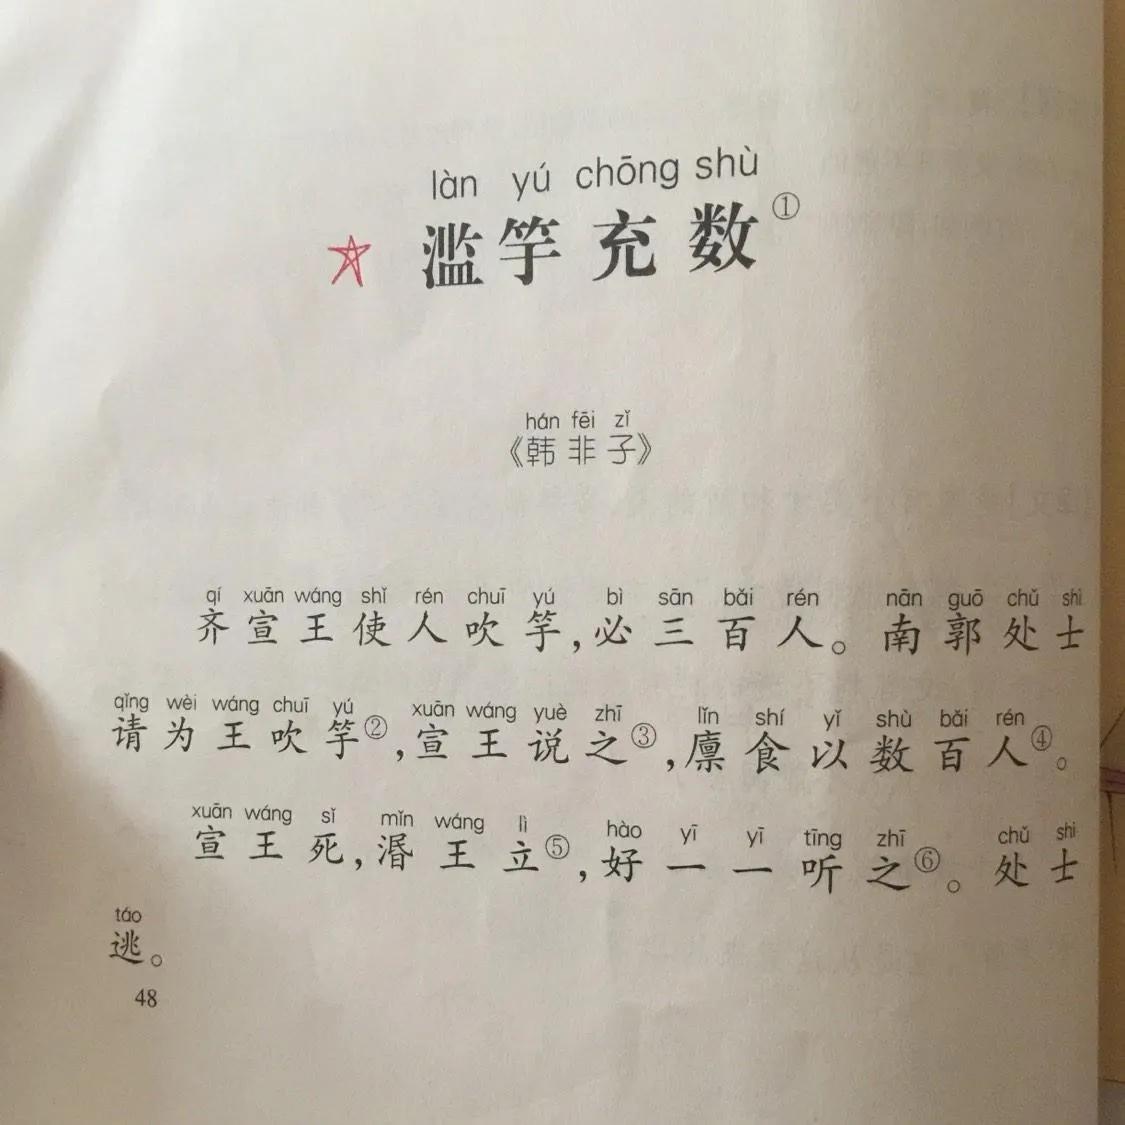 làn yú chōng shù
滥竽充数①
hán fēi zǐ
《韩非子》
qí xuān wáng shǐ rén chuī yú bì sān bǎi rén nān guō chǔ shì
齐宣王使人吹竽,必三百人。南郭处士
qǐng wèi wáng chuī yú xuān wáng yuè zhī lǐn shí yǐ shù bǎi rén
请为王吹竽②,宣王说之③,廪食以数百人④。
xuān wáng sǐ mǐn wáng lì hào yī yī tīng zhī chǔ shi
宣王死,湣王立⑤,好一一听之⑥。处士
táo
逃。
48